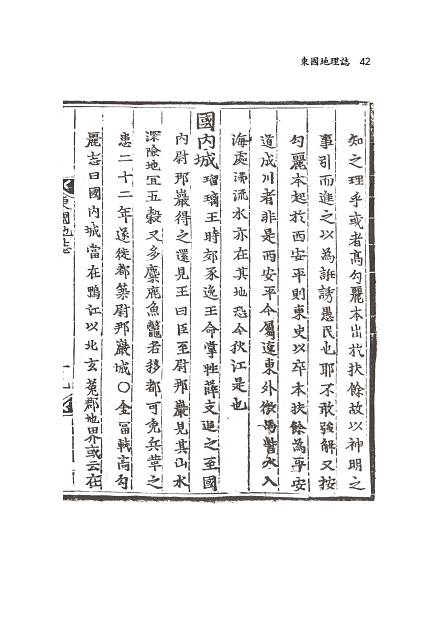 東國地理誌 42
知之理乎或者高勾麗本出扵扶餘故以神明之
事引而進之以為誑誘愚民也耶不敢強解又按
勾麗本起扵西安平則東史以卒本扶餘為
道成川者非是西安平今屬遼東外徼馬訾水入
海處沸流水亦在其地恐今狄江是也
國內城瑠璃王時郊豕逸王命掌牲薛支追之至國
內尉那巖得之還見王曰臣至尉那巖見其山水
深險地宜五穀又多麋鹿魚鼈若移都可免兵革之
患二十二年遂徙都築尉那巖城〇金富軾高勾
麗志曰國內城當在鴨江以北玄菟郡地界或云在
東國地誌